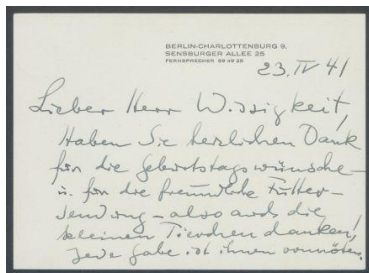 BERLIN-CHARLOTTENBURG 9,
SENSBURGER ALLEE 25
FERNSPRECHER 99 49 29
23. IV 41
Lieber Herr Wissigkeit,
Haben Sie herzlichen Dank
für die Geburtstagswünsche –
u. für die freundliche Futter-
sendung – also auch die
kleinen Tierchen danken!
Jede Gabe ist ihnen vonnöten.